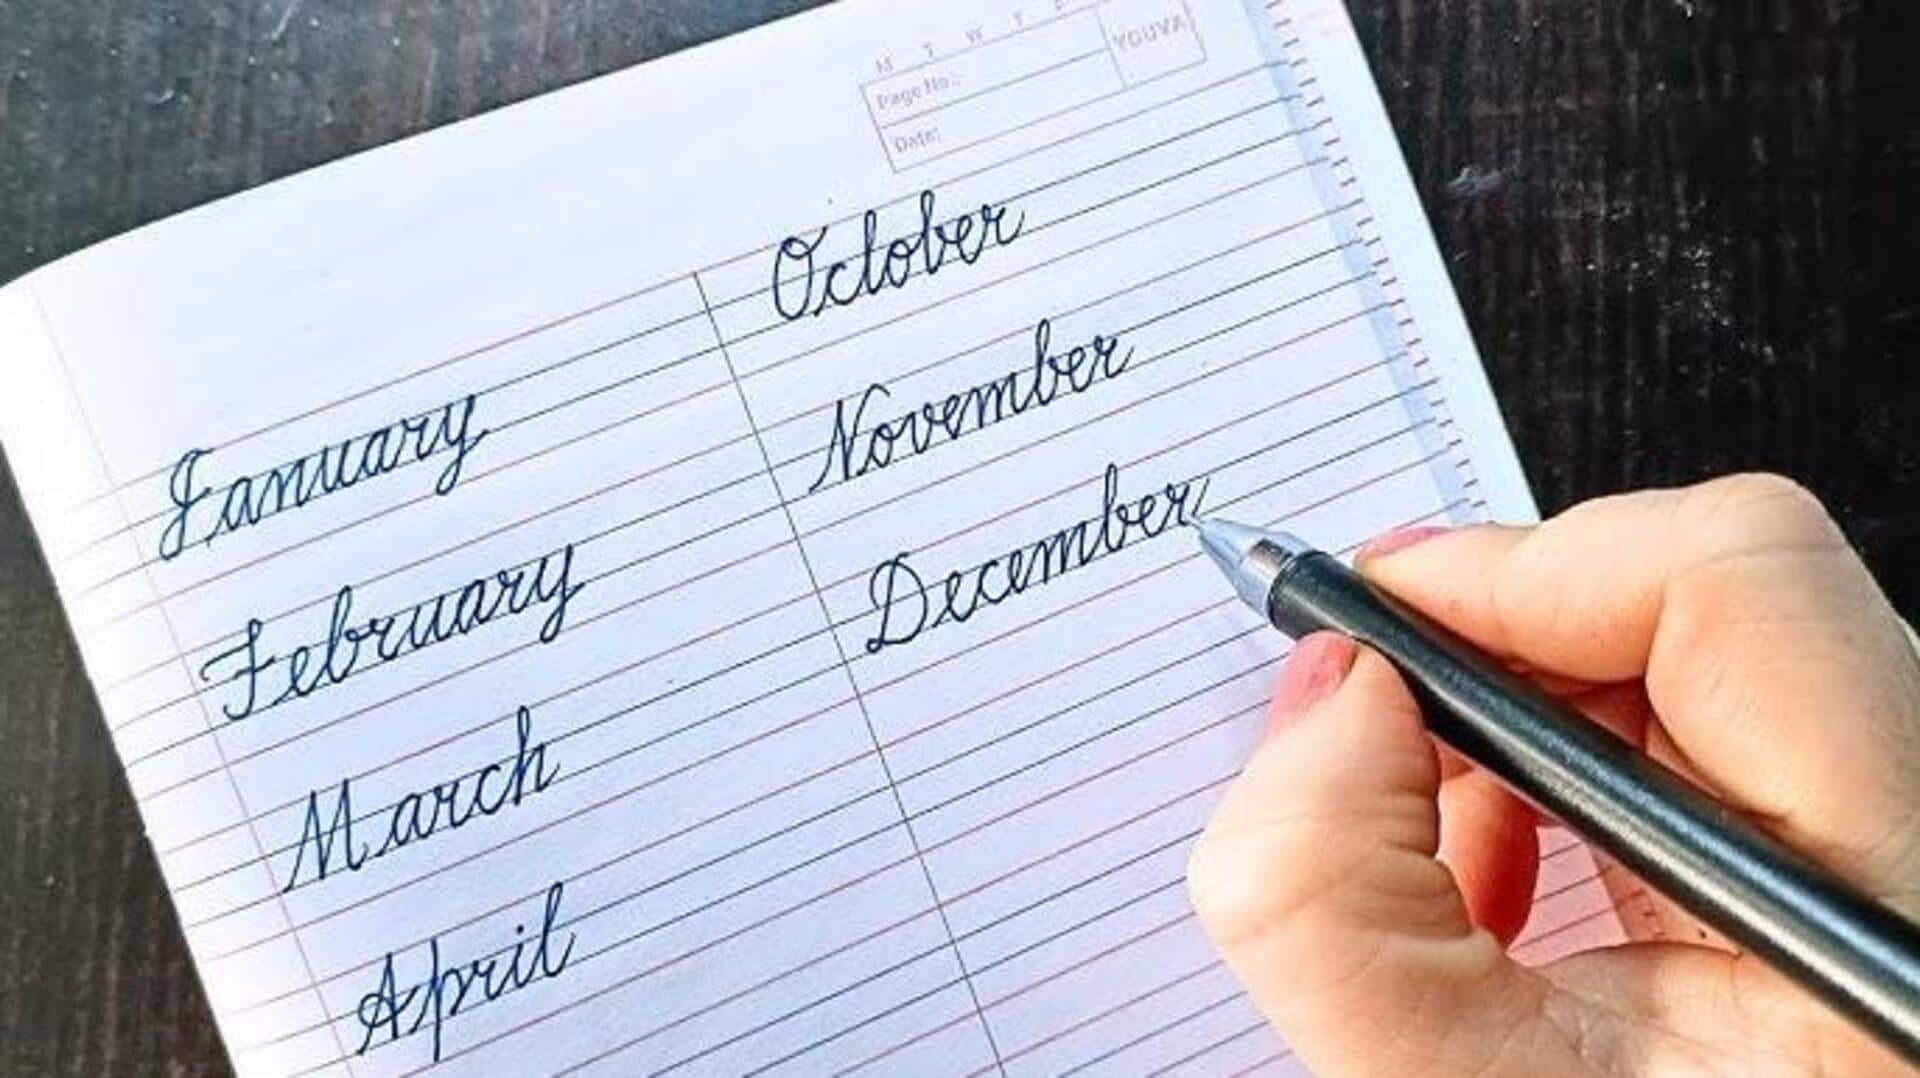 M T W T F
Page No.:
Date:
YOUVA
January
February
March
April
October
November
December